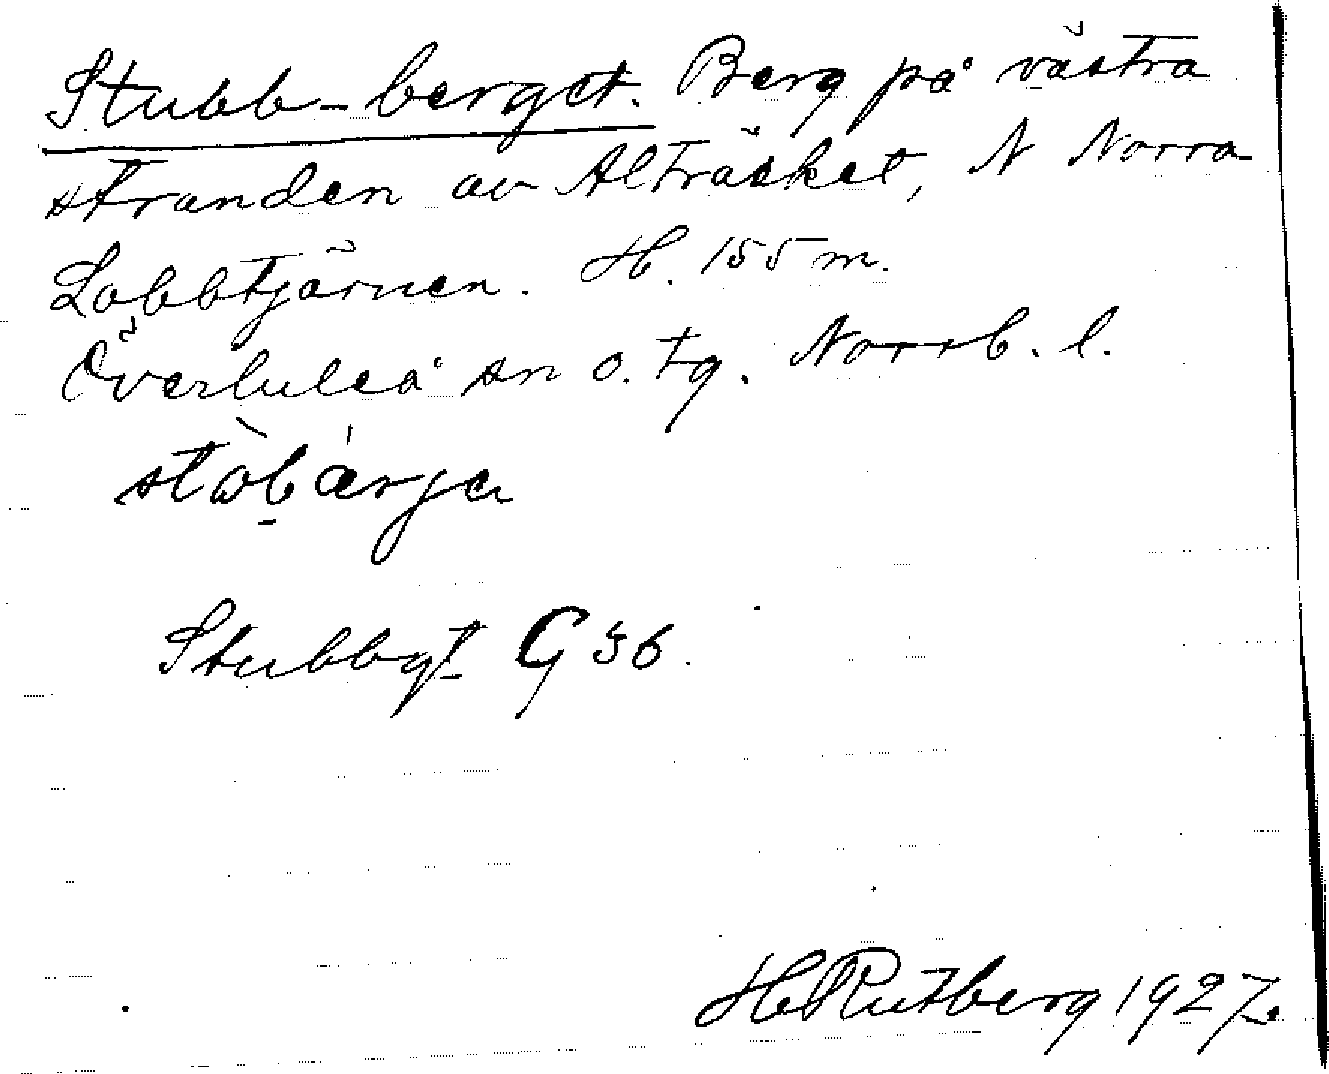 Stubb-berget. Berg på västra
stranden av Alträsket, N Norra
Lobbtjärnen. H. 155 m.
Överluleå sn o. tg. Norrb. l.
Stubbgt G 36.
H Rutberg 1927.